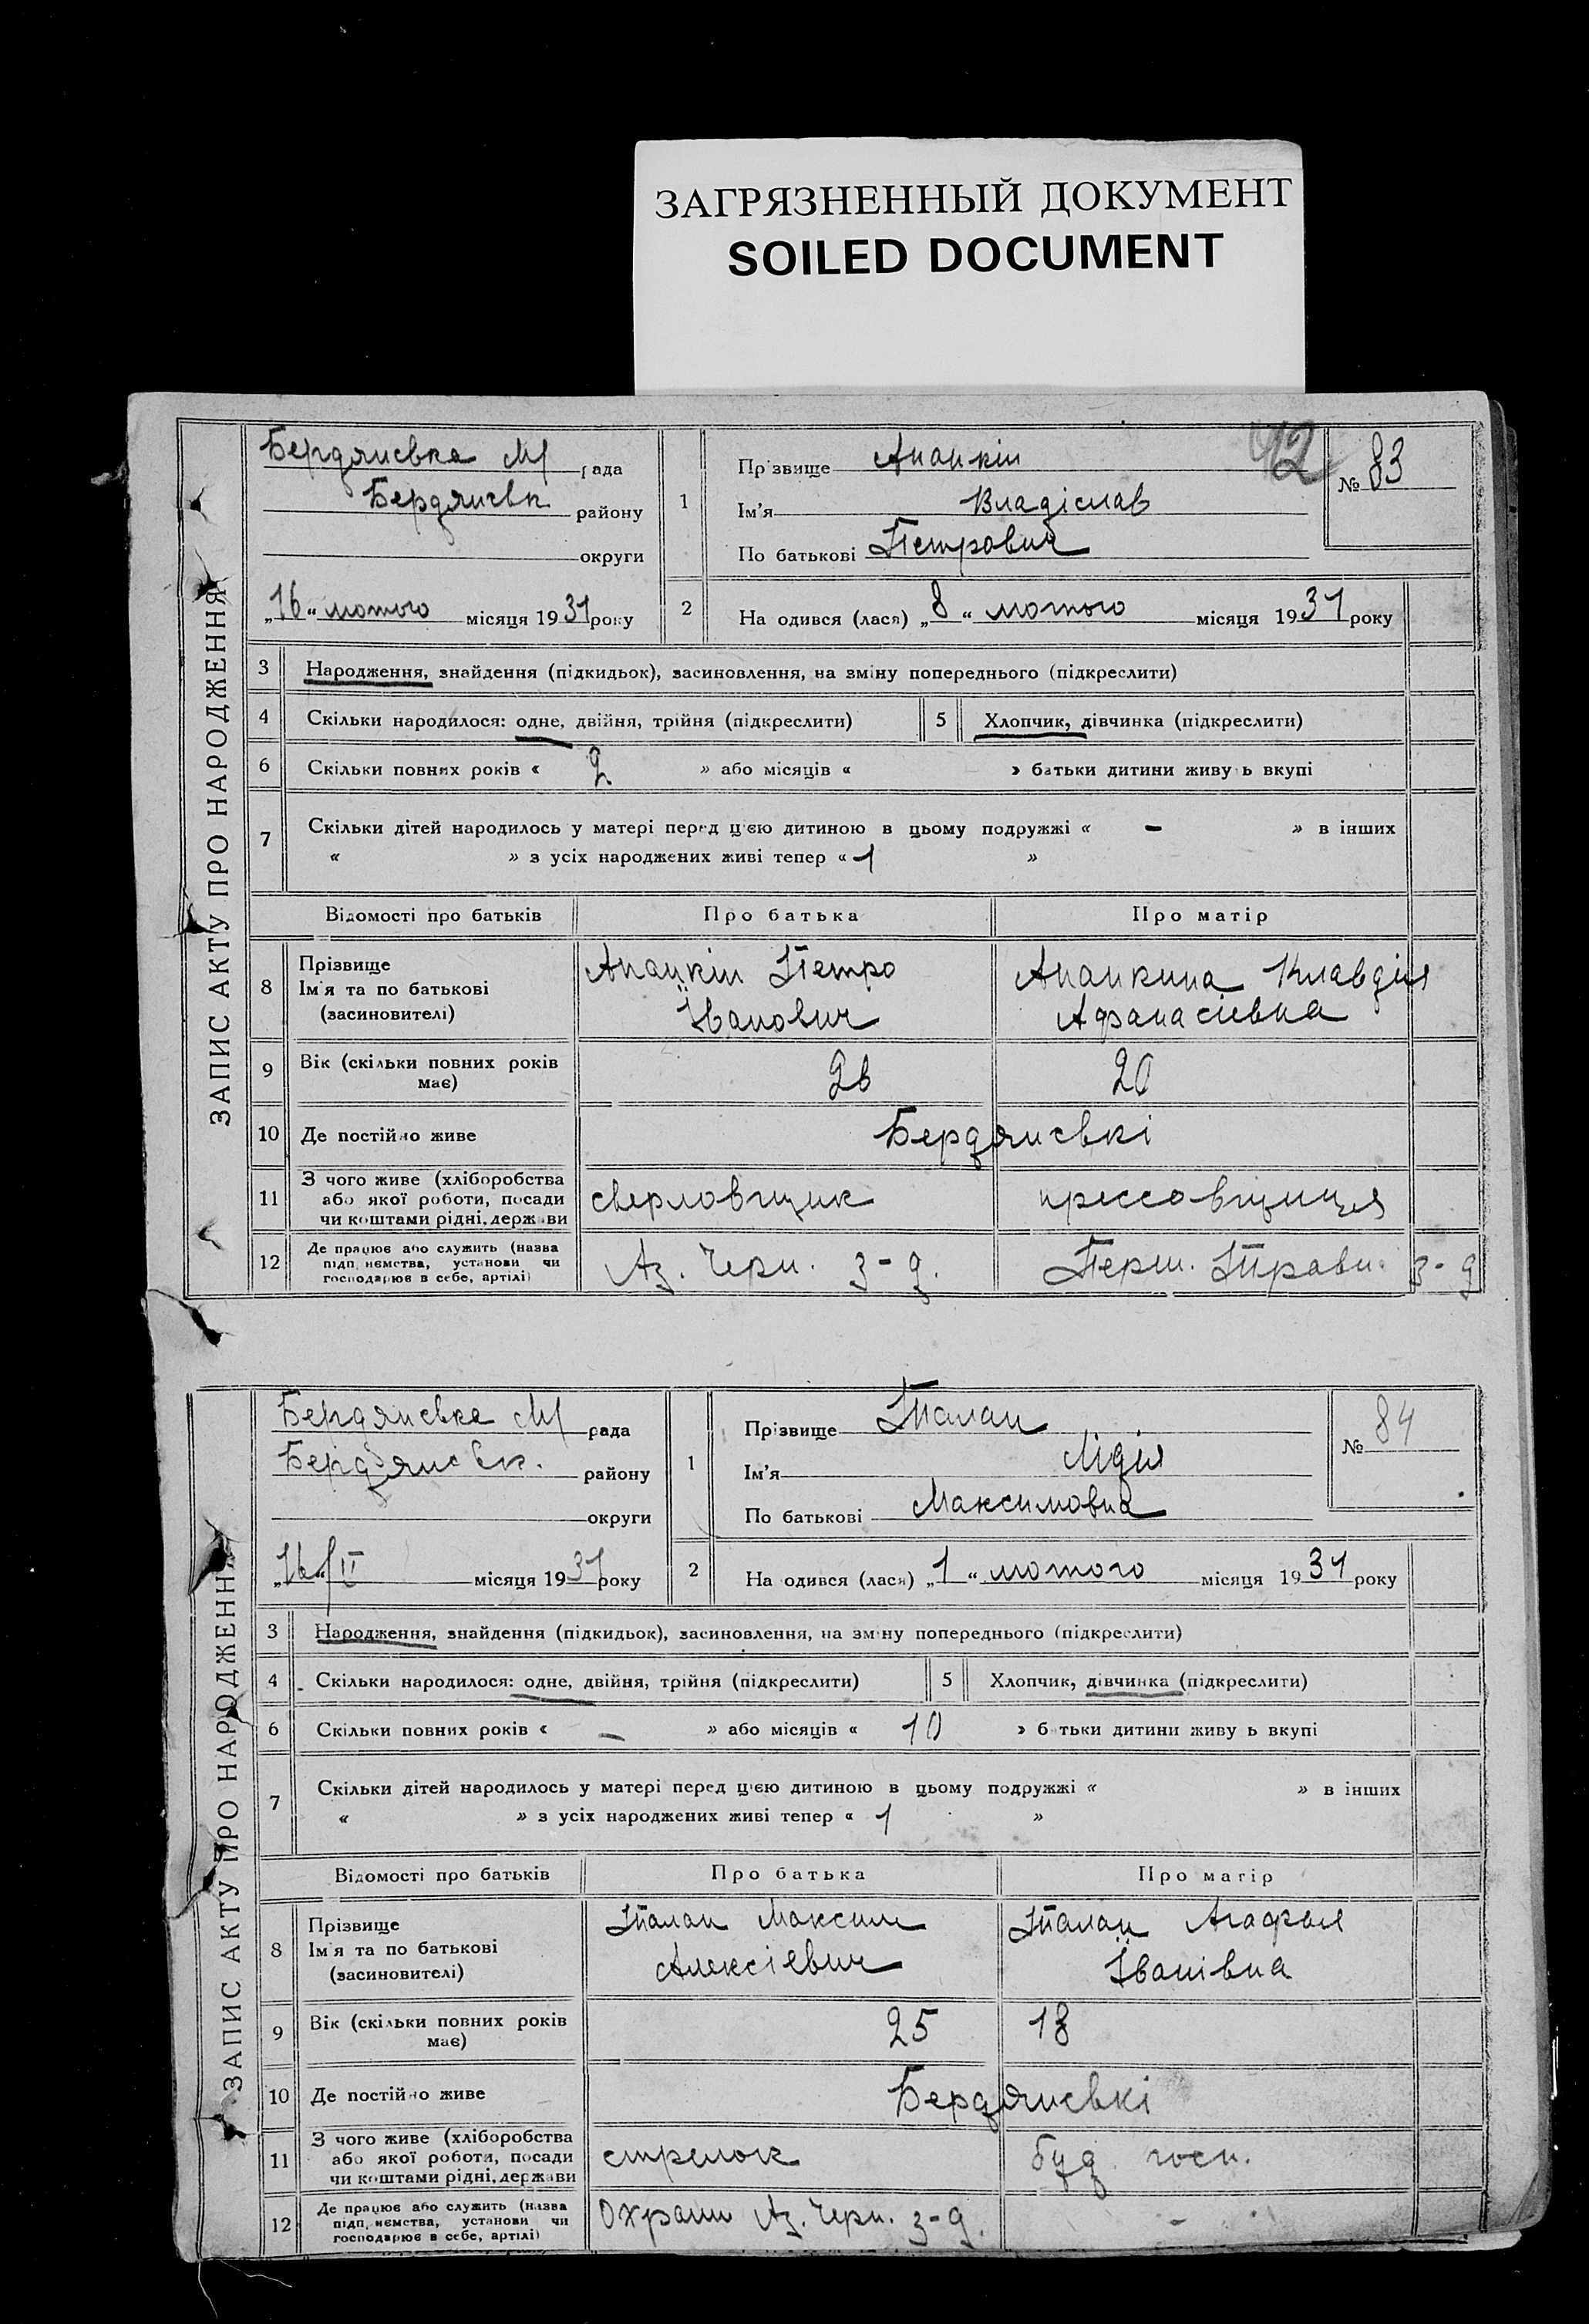 ЗАГРЯЗНЕННЫЙ ДОКУМЕНТ
SOILED DOCUMENT
ЗАПИС АКТУ ПРО НАРОДЖЕННЯ
Бердянська М/ рада
Бердянськ району
округи
„16“ лютого місяця 1931 року
1
Прізвище Апанкін
Ім'я Владіслав
По батькові Петрович
42
№ 83
2 На одився (лася) „8“ лютого місяця 1931 року
3 Народження, знайдення (підкидьок), засиновлення, на зміну попереднього (підкреслити)
4 Скільки народилося: одне, двійня, трійня (підкреслити) 5 Хлопчик, дівчинка (підкреслити)
6 Скільки повних років « 2 » або місяців « » батьки дитини живу ь вкупі
7 Скільки дітей народилось у матері перед цією дитиною в цьому подружжі « - » в інших
« » з усіх народжених живі тепер « 1 »
Відомості про батьків Про батька Про матір
8 Прізвище
Ім'я та по батькові
(засиновителі)
Апанкін Петро
Іванович
Апанкина Клавдія
Афанасієвна
9 Вік (скільки повних років має) 26 20
10 Де постійно живе Бердянські
11 З чого живе (хліборобства
або якої роботи, посади
чи коштами рідні, держави
сверловщик прессовщиця
12 Де працює або служить (назва
підп. иємства, установи чи
господарює в себе, артілі)
Аз. Черн. з-д. Перш. Травн. з-д
ЗАПИС АКТУ ПРО НАРОДЖЕННЯ
Бердянська М/ рада
Бердянськ. району
округи
„16“ II місяця 1931 року
1
Прізвище Талан
Ім'я Лідія
По батькові Максимовна
№ 84
2 На одився (лася) „1“ лютого місяця 1931 року
3 Народження, знайдення (підкидьок), засиновлення, на зміну попереднього (підкреслити)
4 Скільки народилося: одне, двійня, трійня (підкреслити) 5 Хлопчик, дівчинка (підкреслити)
6 Скільки повних років « - » або місяців « 10 » б тьки дитини живу ь вкупі
7 Скільки дітей народилось у матері перед цією дитиною в цьому подружжі « » в інших
« » з усіх народжених живі тепер « 1 »
Відомості про батьків Про батька Про матір
8 Прізвище
Ім'я та по батькові
(засиновителі)
Талан Максим
Алексієвич
Талан Агафья
Іванівна
9 Вік (скільки повних років має) 25 18
10 Де постійно живе Бердянські
11 З чого живе (хліборобства
або якої роботи, посади
чи коштами рідні, держави
стрелок буд. госп.
12 Де працює або служить (назва
підп. иємства, установи чи
господарює в себе, артілі)
Охрани Аз. Черн. з-д. -